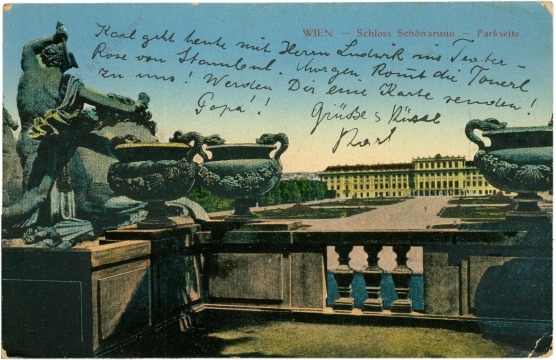 WIEN – Schloss Schönbrunn – Parkseite.
Karl geht heute mit Herrn Ludwik ins Teater-
Rose von Stambul. Morgen kommt die Tonerl
zu uns! Werden Dir eine Karte senden!
Papa!! Grüße & Küsse
Karl